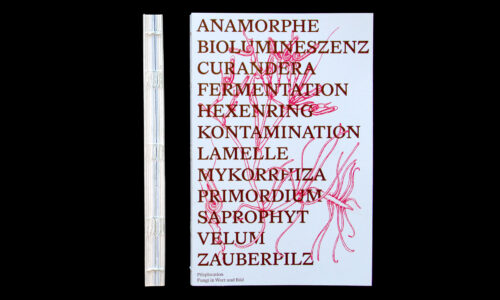 ANAMORPHE
BIOLUMINESZENZ
CURANDERA
FERMENTATION
HEXENRING
KONTAMINATION
LAMELLE
MYKORRHIZA
PRIMORDIUM
SAPROPHYT
VELUM
ZAUBERPILZ
Pilzplosion
Fungi in Wort und Bild